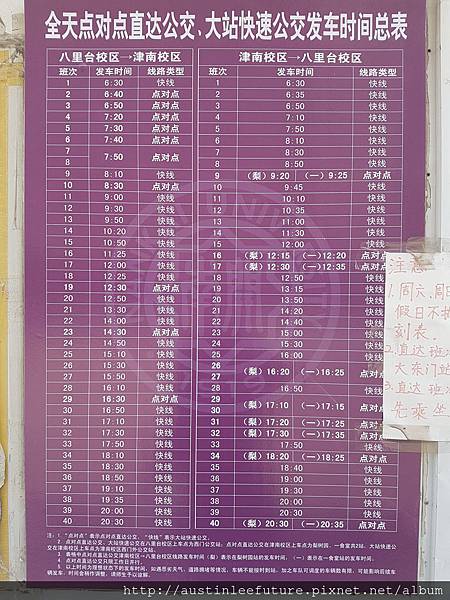 全天点对点直达公交、大站快速公交发车时间总表
八里台校区→津南校区 津南校区→八里台校区
班次 发车时间 线路类型 班次 发车时间 线路类型
1 6:30 快线 1 6:30 快线
2 6:40 点对点 2 6:35 快线
3 6:50 点对点 3 6:50 快线
4 7:20 点对点 4 7:10 快线
5 7:30 点对点 5 7:50 快线
6 7:40 点对点 6 8:10 快线
7 7 8:30 快线
8 7:50 点对点 8 8:50 快线
9 8:10 快线 9 (梨) 9:20 (一) 9:25 点对点
10 8:30 点对点 10 9:45 快线
11 9:00 快线 11 10:10 快线
12 9:30 快线 12 10:35 快线
13 9:50 快线 13 11:00 快线
14 10:20 快线 14 11:30 快线
15 10:50 快线 15 12:00 快线
16 11:25 快线 16 (梨) 12:15 (一) 12:20 点对点
17 12:00 快线 17 (梨) 12:30 (一) 12:35 点对点
18 12:25 快线 18 12:50 快线
19 12:30 点对点 19 13:15 快线
20 12:50 快线 20 13:50 快线
21 13:30 快线 21 14:20 快线
22 14:00 快线 22 14:40 快线
23 14:30 点对点 23 15:00 快线
24 14:50 快线 24 15:30 快线
25 15:10 快线 25 16:00 快线
26 15:30 快线 26
27 15:50 快线 27 (梨) 16:20 (一) 16:25 点对点
28 16:10 快线 28 16:50 快线
29 16:30 点对点 29
30 16:50 快线 30 (梨) 17:10 (一) 17:15 点对点
31 17:10 快线 31 (梨) 17:20 (一) 17:25 点对点
32 17:30 快线 32 (梨) 17:30 (一) 17:35 点对点
33 17:50 快线 33 17:50 快线
34 18:10 快线 34 (梨) 18:20 (一) 18:25 点对点
35 18:30 快线 35 18:40 快线
36 18:50 快线 36 19:00 快线
37 19:10 快线 37 19:30 快线
38 19:35 快线 38 20:00 快线
39 20:00 快线 39 快线
40 20:30 快线 40 (梨) 20:30 (一) 20:35 点对点
注：1、"点对点"表示点对点直达公交，"快线"表示大站快速公交。
注意
1.周六、周日
假日不
刻表.
2.直达班
大东门站
3.直达班
先乘坐
http://austinleefuture.pixnet.net/album